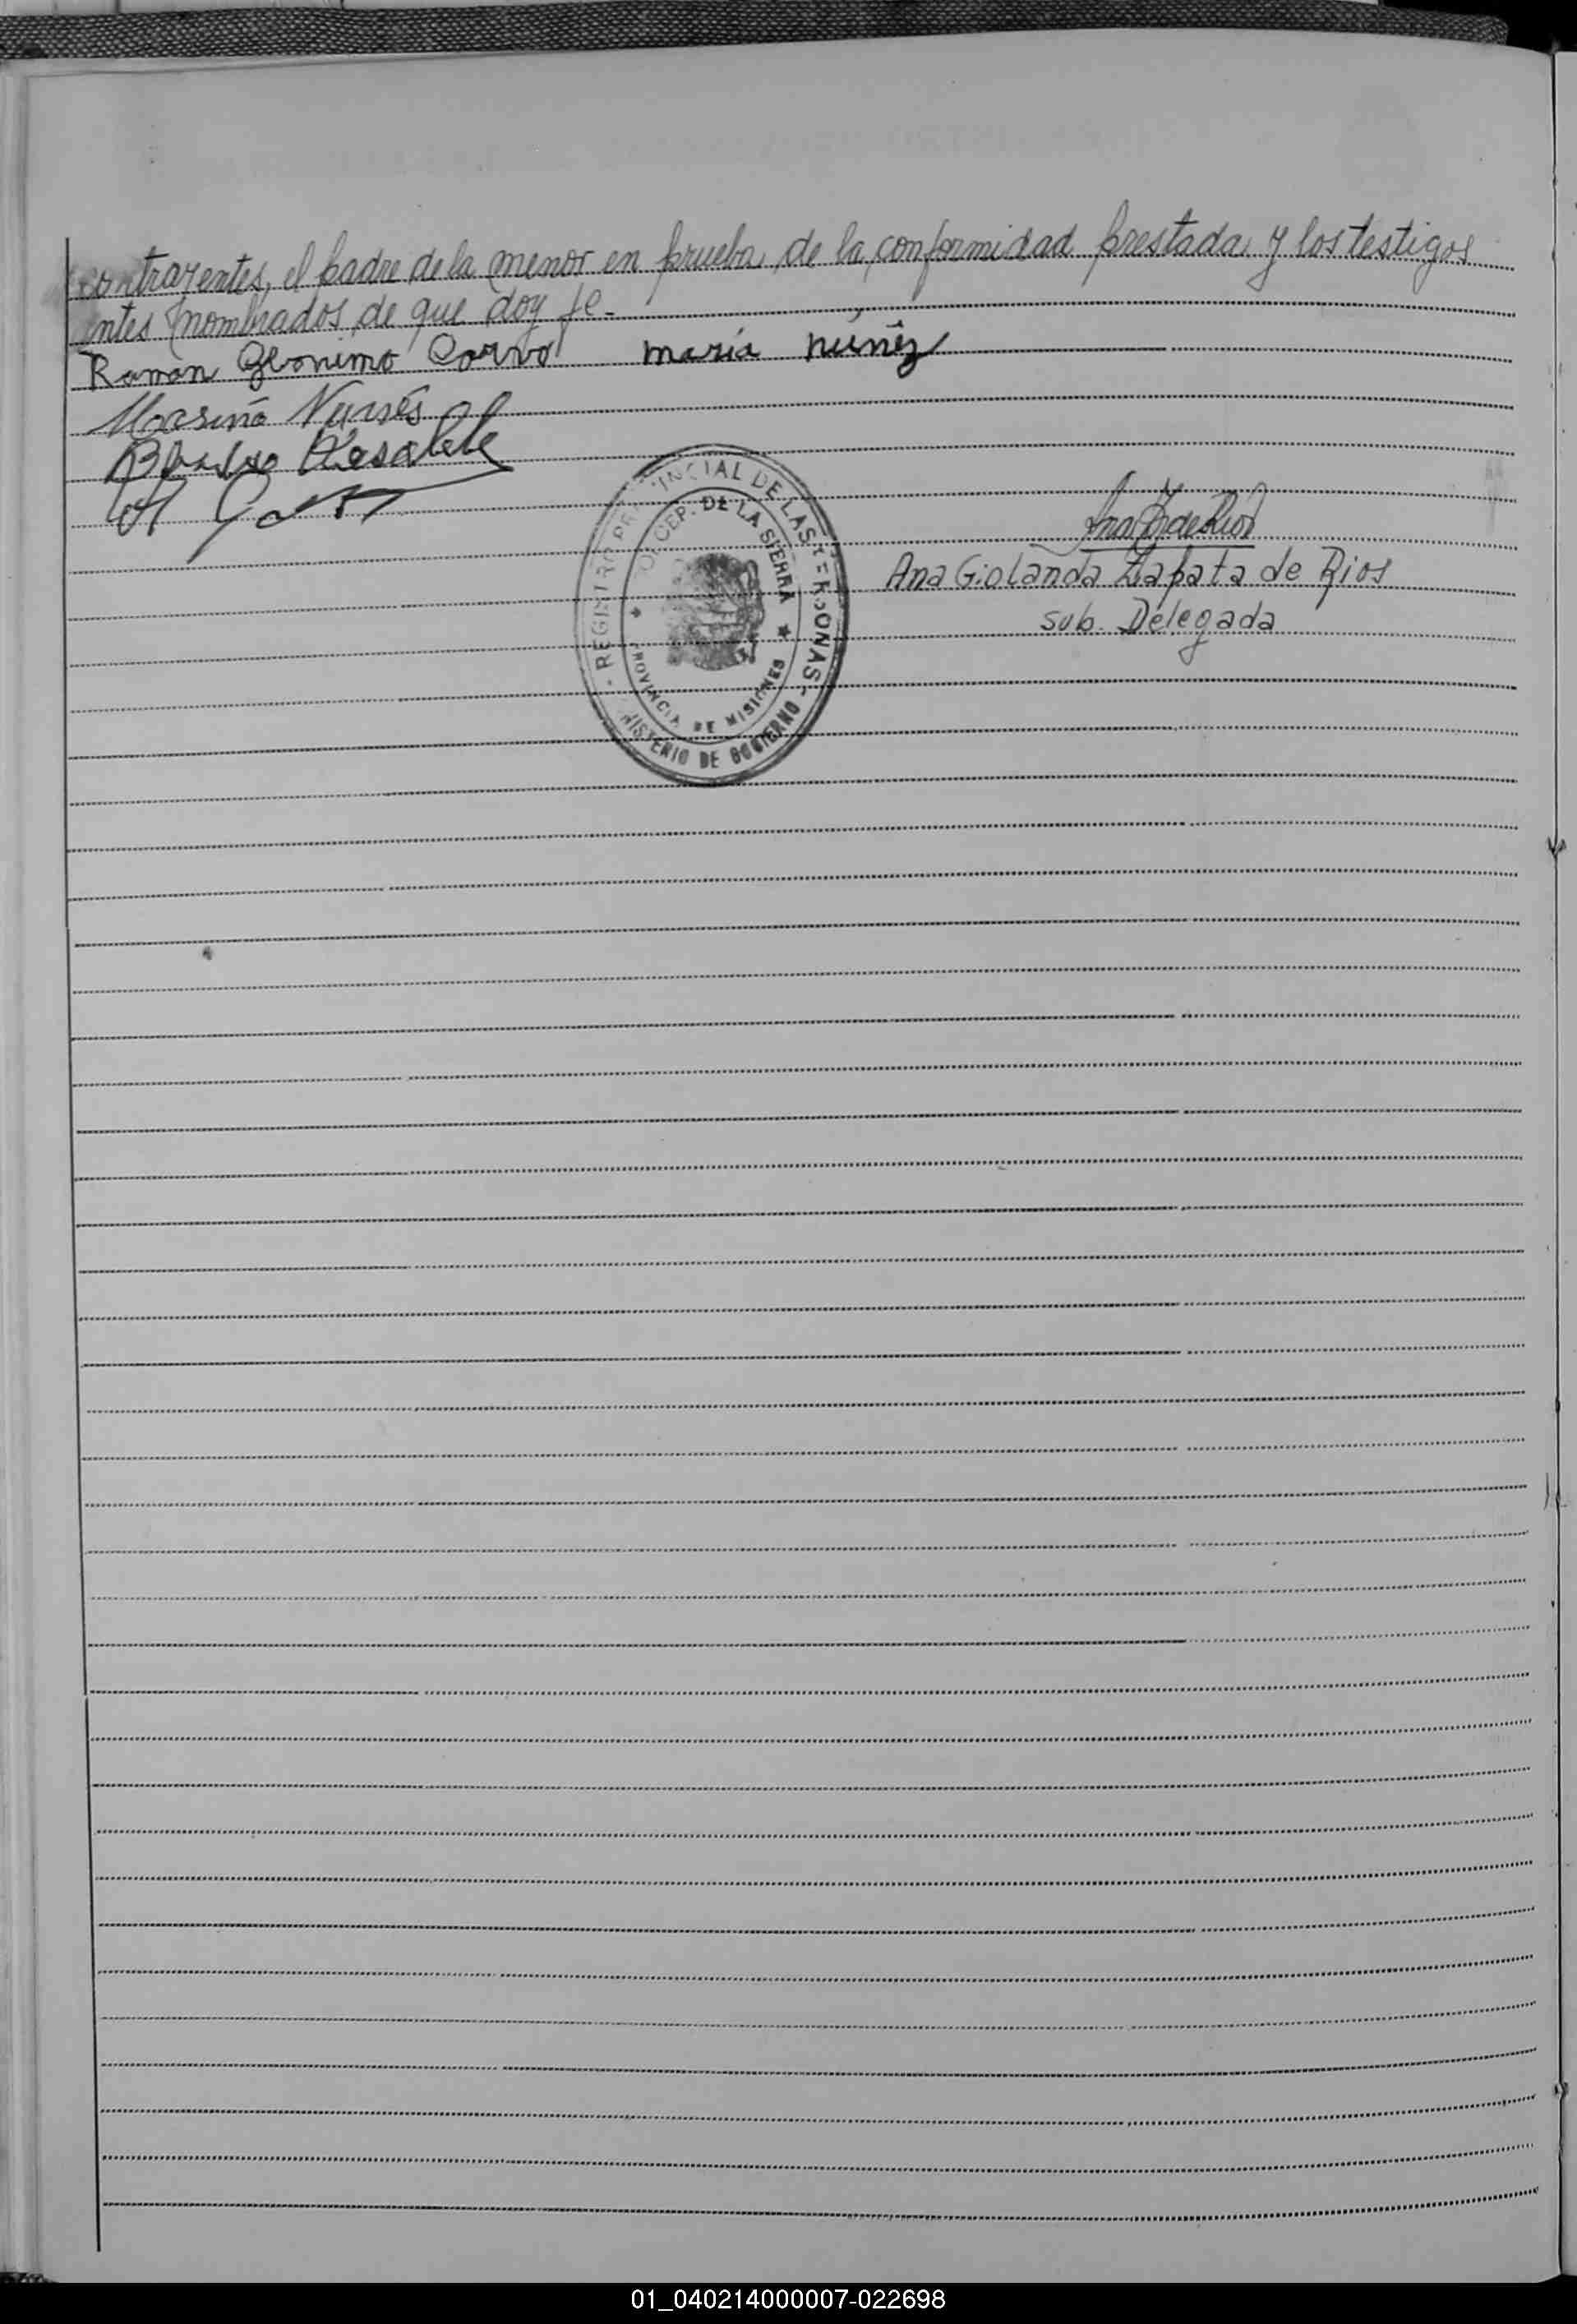 contrayentes, el padre de la menor en prueba de la conformidad prestada y los testigos
antes nombrados, de que doy fe.
Ramon Geronimo Corvo maría núñez
Nunés
Ana Giolanda Zapata de Rios
sub. Delegada
- REGISTRO PROVINCIAL DE LAS PERSONAS -
MINISTERIO DE GOBIERNO
CONCEP. DE LA SIERRA
PROVINCIA DE MISIONES
01_040214000007-022698